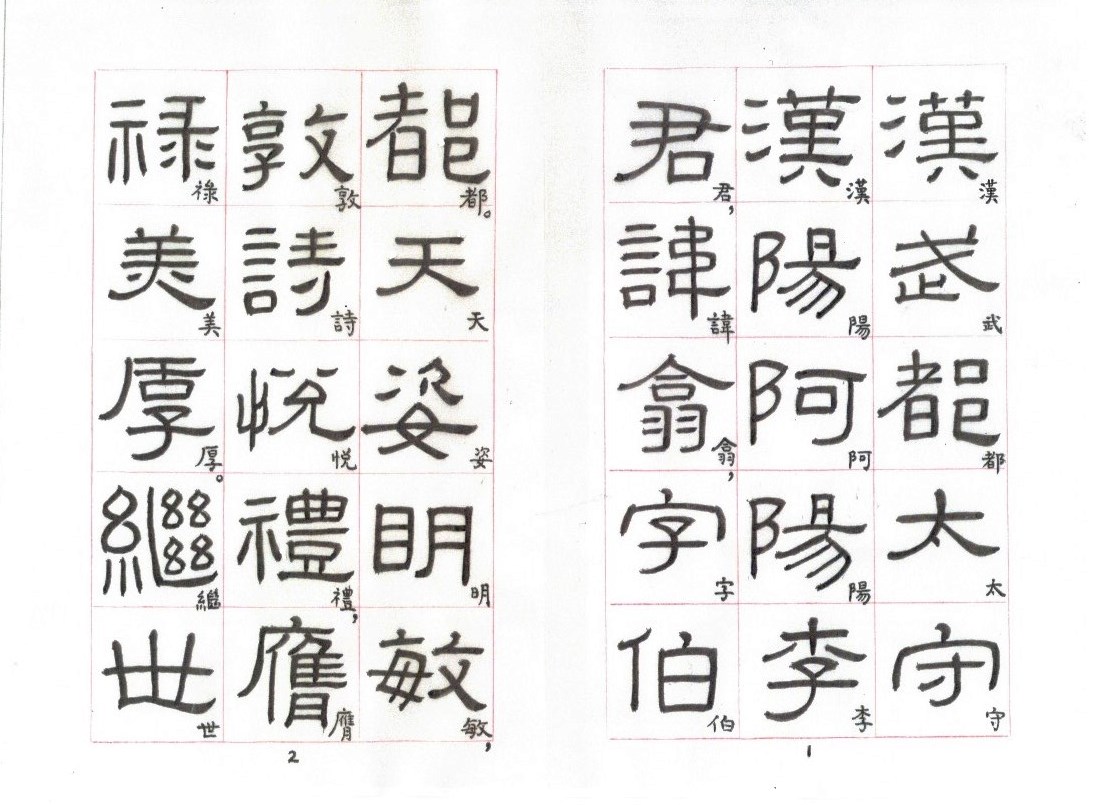 漢武都太守
漢武都太守
漢陽阿陽李
漢陽阿陽李
君諱翕字伯
君,諱翕,字伯
1
都天姿明敏
都。天姿明敏,
敦詩悅禮膺
敦詩悅禮,膺
祿美厚繼世
祿美厚。繼世
2